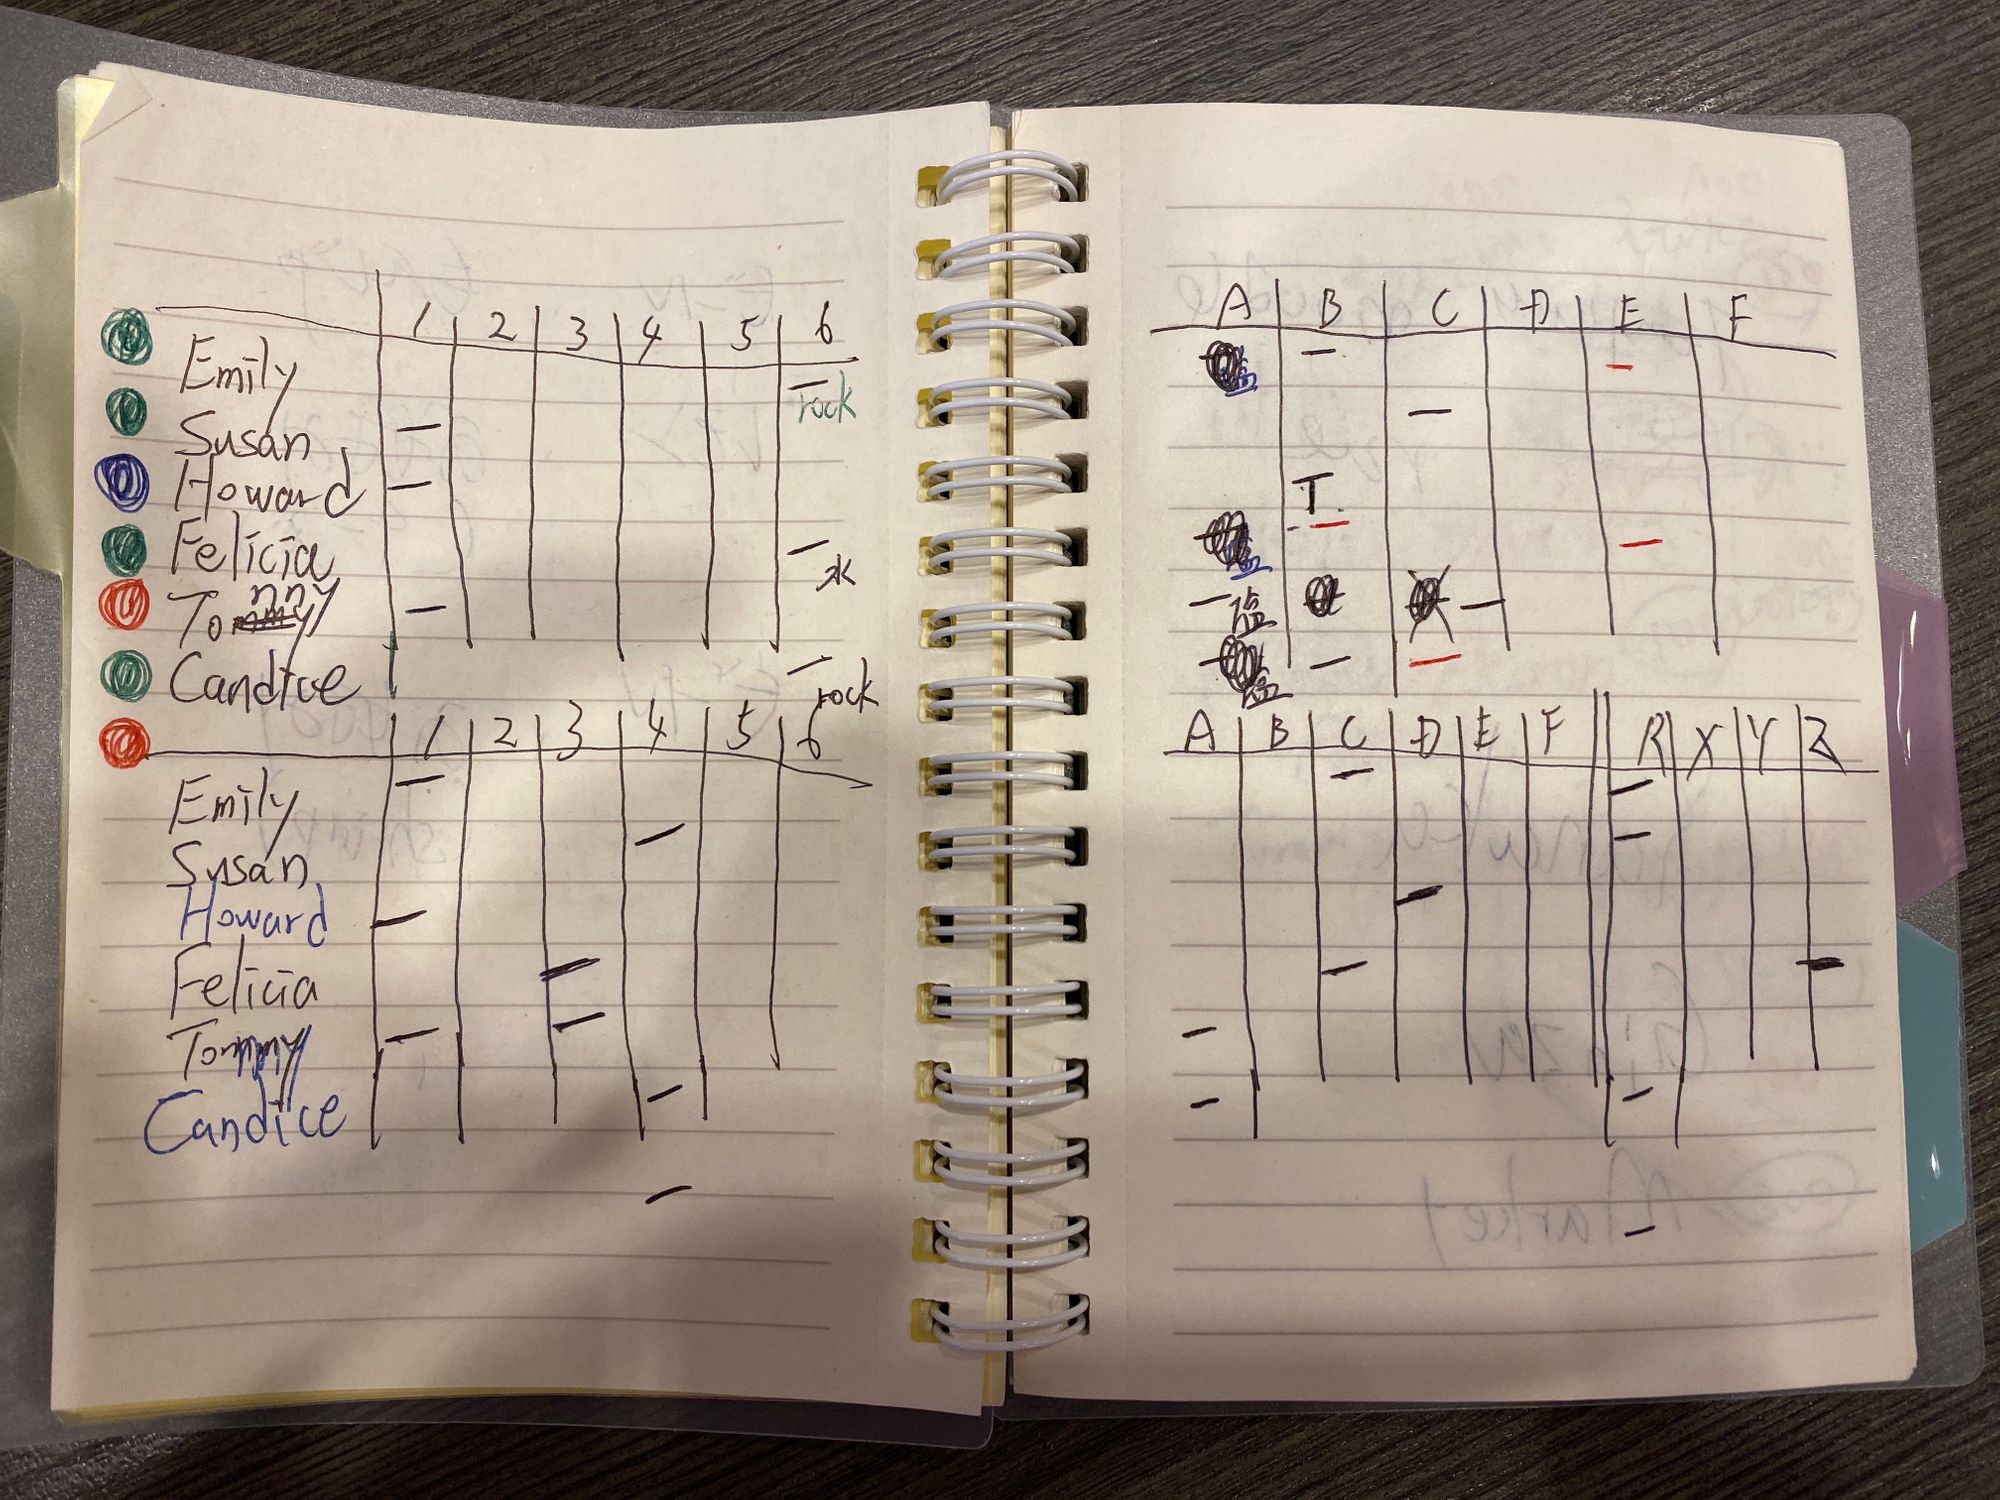 1 2 3 4 5 6
Emily —
rock
Susan —
Howard —
Felicia —
水
Tonny —
Candice —
rock
1 2 3 4 5 6
Emily —
Susan —
Howard —
Felicia —
Tommy — —
Candice —
—
A B C D E F
塩 — —
—
T
— —
塩
— 塩 —
塩 — —
A B C D E F R X Y Z
— —
—
—
— —
—
— —
—